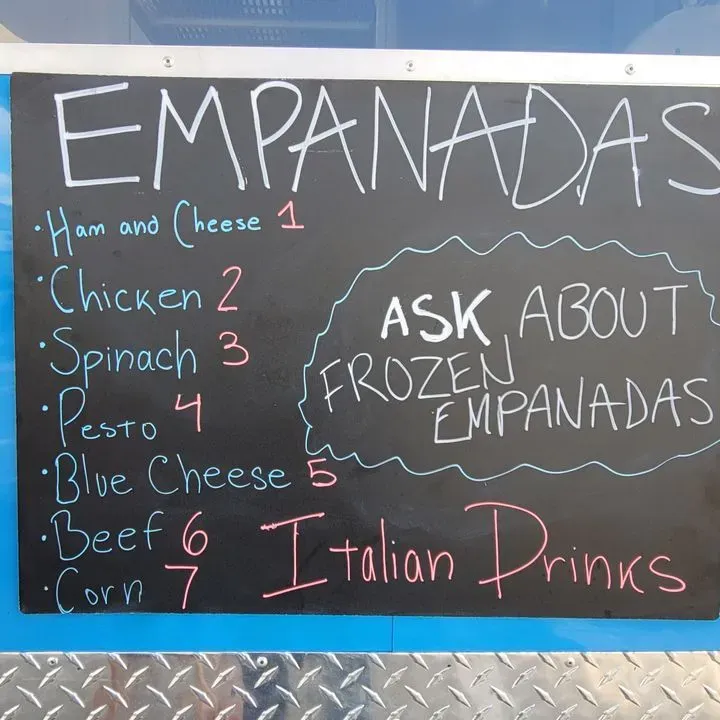 EMPANADAS
· Ham and Cheese 1
· Chicken 2
· Spinach 3
· Pesto 4
· Blue Cheese 5
· Beef 6
· Corn 7
ASK ABOUT
FROZEN
EMPANADAS
Italian Drinks